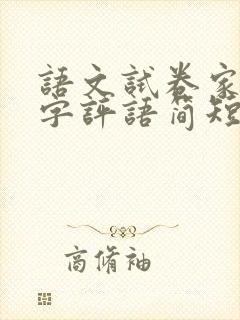 語文試卷家
字評語简短
商脩袖